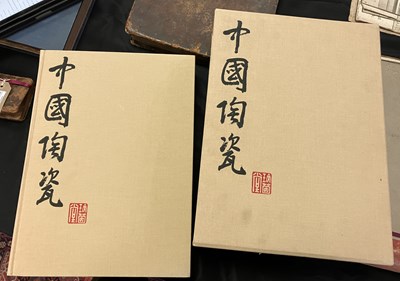 中國陶瓷
中國陶瓷